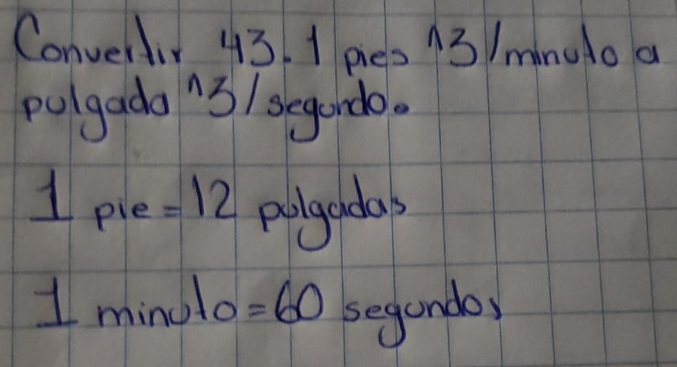 Convertir 43.1 pies ^3/minuto a
pulgada ^3/segundo.
1 pie = 12 pulgadas
1 minuto = 60 segundos